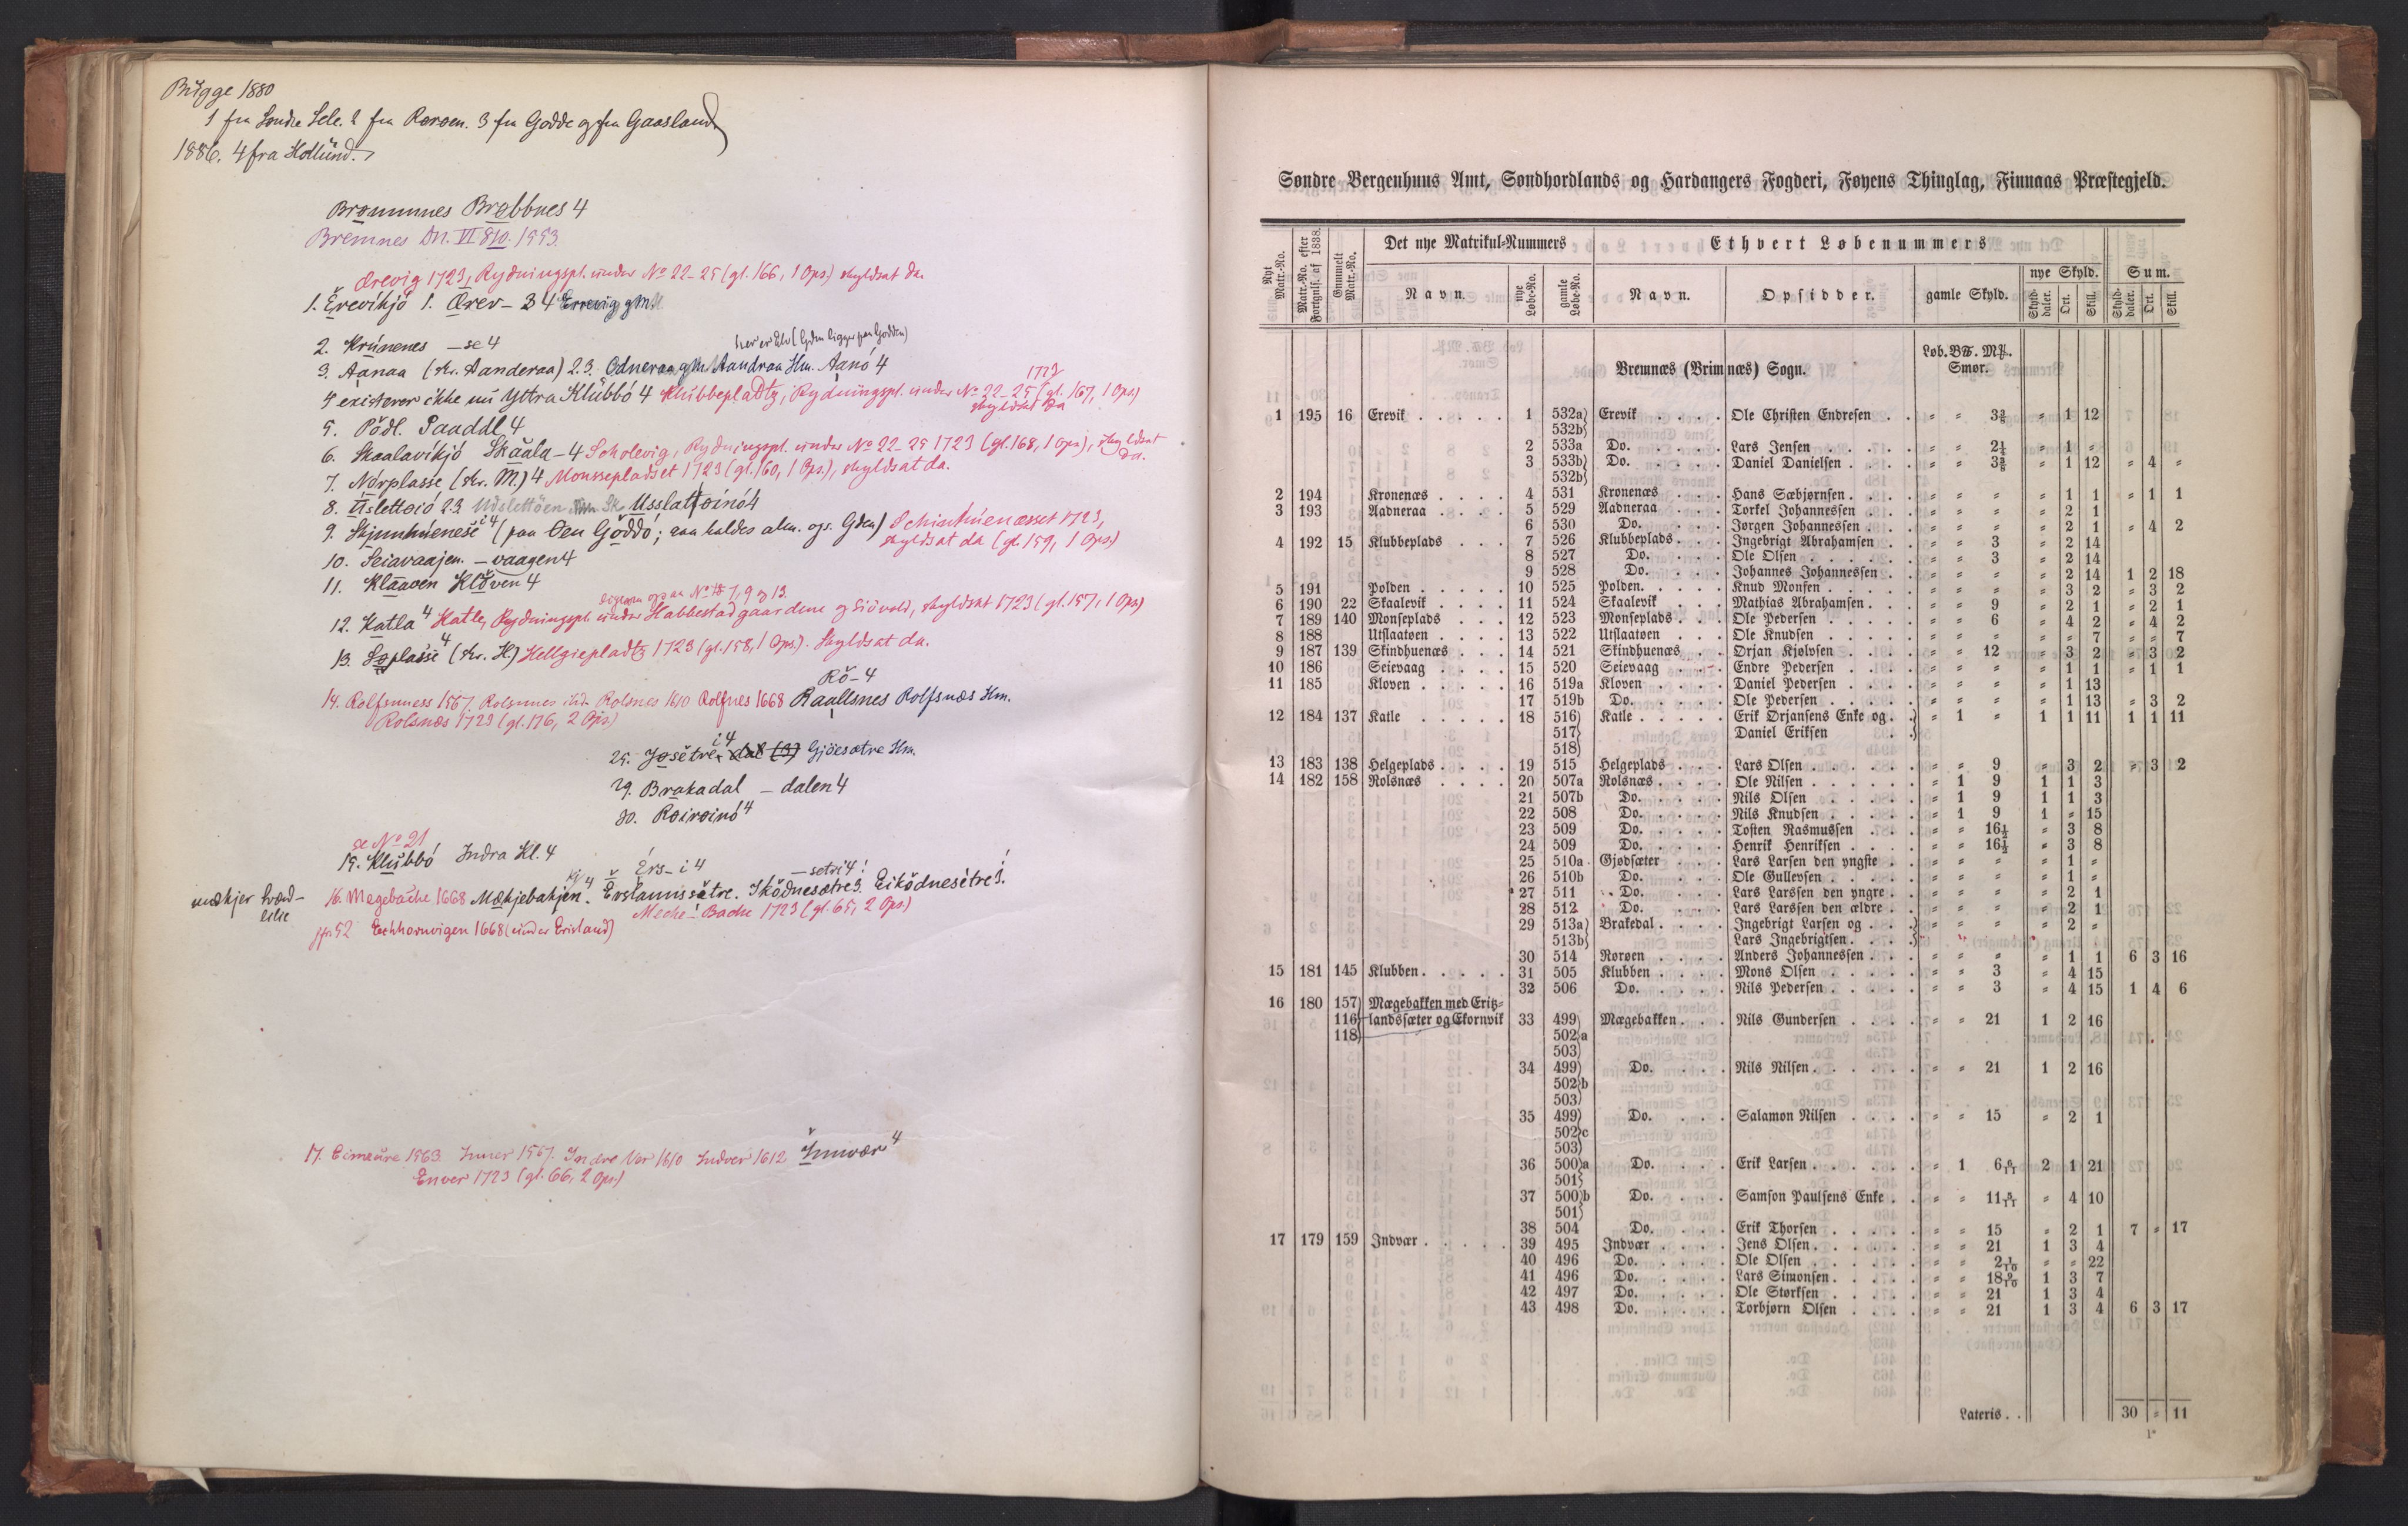 Bugge 1880
1 fra Søndre Sele. 2 fra Rørøen. 3 fra Godde og fra Gaasland
1886. 4 fra Hollund.
Brømmnes Brøbbnes 4
Bremnes Dn. VI 810. 1553.
Ærevig 1723, Rydningspl. under No 22-25 (gl. 166, 1 Ops.) skyldsat da.
1. Ærevikjó 1. Ærev- 3 4 Errevig gm.
2. Krúnenes -se 4
3. Aanaa (skr. Aanderaa) 2.3. Odneraa gm. Aandraa Hm. Aanó 4
4 existerer ikke nú Yttra Klúbbó 4 Klubbepladtz, Rydningspl. under No 22-25 1723 (gl. 167, 1 Ops)
skyldsat da
5. Pödl. Paaddl 4
6. Skaalavikjó Skaala-4 Scholevig, Rydningspl. under No 22-25 1723 (gl. 168, 1 Ops), skyldsat da.
7. Nórplasse (skr. M.) 4 Monssepladset 1723 (gl. 160, 1 Ops.), skyldsat da.
8. Úslettoió 2.3 Udslettöen Usslattoinó 4
9. Skjinnhúenese i 4 (paa Øen Göddo; aa kaldes alm. ogs. Gden) Schinhúenæsset 1723,
skyldsat da (gl. 159, 1 Ops.)
10. Seiavaajen. -vaagen 4
11. Klaaven Klöven 4
12. Katla 4 Katle, Rydningspl. under Habbestadgaardene og Siövold, skyldsat 1723 (gl. 157, 1 Ops)
13. Søplasse 4 (skr. H.) Hellgiepladtz 1723 (gl. 158, 1 Ops.). Skyldsat da.
Rö-4
14. Rolfsness 1567. Rolsnes ibd. Rolsnes 1610 Rolfnes 1668 Raallsnes Rolfsnæs Hm.
Rolsnæs 1723 (gl. 176, 2 Ops.)
25. Jøsètre i 4 Gjöesætre Hm.
29. Brakadal - dalen 4
30. Roiroinó 4
se No 21
15. Klúbbó Indra Kl. 4
16. Megebache 1668 Mækhjebakjen 4. Erslannssætre. Érs-i 4 Iködnesætre 3. -setri 4! Eiködnesètre 3.
Meche-Bache 1723 (gl. 65, 2 Ops.)
jfr 52 Echhornvigen 1668 (under Erisland)
17. Eimeúre 1563. Inner 1567. Indre Vær 1610 Indver 1612 Innvær 4
Enver 1723 (gl. 66, 2 Ops.)
Søndre Bergenhuus Amt, Søndhordlands og Hardangers Fogderi, Føyens Thinglag, Finnaas Præstegjeld.
Nyt Matr.-No. Matr.-No. efter Fortegnelf. af 1838. Gammelt Matr.-No. Det nye Matrikul-Nummers Ethvert Løbenummers
Navn. nye Løbe-No. gamle Løbe-No. Navn. Opsidder. gamle Skyld. nye Skyld. Sum.
Skyld-daler. Ort. Skill. Skyld-daler. Ort. Skill.
Bremnæs (Brimnæs) Sogn. Løb. B℔. M℔. Smør.
1 195 16 Erevik 1 532a) 532b) Erevik Ole Christen Endresen " " 3 3/8 " 1 12
2 533a Do. Lars Jensen " " 2 1/4 " 1 "
3 533b) 532b) Do. Daniel Danielsen " " 3 3/8 " 1 12 " 4 "
2 194 Kronenæs 4 531 Kronenæs Hans Sæbjørnsen " " " " 1 1 " 1 1
3 193 Aadneraa 5 529 Aadneraa Torkel Johannessen " " " " 2 1
6 530 Do. Jørgen Johannessen " " " " 2 1 " 4 2
4 192 15 Klubbeplads 7 526 Klubbeplads Ingebrigt Abrahamsen " " 3 " 2 14
8 527 Do. Ole Olsen " " 3 " 2 14
9 528 Do. Johannes Johannessen " " " " 2 14 1 2 18
5 191 Polden 10 525 Polden Knud Monsen " " " " 3 2 " 3 2
6 190 22 Skaalevik 11 524 Skaalevik Mathias Abrahamsen " " 9 " 2 1 " 2 1
7 189 140 Monseplads 12 523 Monseplads Ole Pedersen " " 6 " 4 2 " 4 2
8 188 Utslaatøen 13 522 Utslaatøen Ole Knudsen " " " " " 7 " " 7
9 187 139 Skindhuenæs 14 521 Skindhuenæs Ørjan Kjølvsen " " 12 " 3 2 " 3 2
10 186 Seievaag 15 520 Seievaag Endre Pedersen " " " " 1 1 " 1 1
11 185 Kloven 16 519a Kloven Daniel Pedersen " " " " 1 13
17 519b Do. Ole Pedersen " " " " 1 13 " 3 2
12 184 137 Katle 18 516) Katle Erik Ørjansens Enke og " 1 " 1 1 11 1 1 11
517) Daniel Eriksen
518)
13 183 138 Helgeplads 19 515 Helgeplads Lars Olsen " " 9 " 3 2 " 3 2
14 182 158 Rolsnæs 20 507a Rolsnæs Ole Nilsen " 1 9 1 1 3
21 507b Do. Nils Olsen " 1 9 1 1 3
22 508 Do. Nils Knudsen " 1 9 1 " 15
23 509 Do. Tosten Rasmussen " " 16 1/2 " 3 8
24 509 Do. Henrik Henriksen " " 16 1/2 " 3 8
25 510a Gjødsæter Lars Larsen den yngste " " " " 1 "
26 510b Do. Ole Gullevsen " " " " 1 "
27 511 Do. Lars Larssen den yngre " " " " 2 1
28 512 Do. Lars Larssen den ældre " " " " 2 1
29 513a) Brakedal Ingebrigt Larsen og " " " " 2 "
513b) Lars Ingebrigtsen
30 514 Rørøen Anders Johannessen " " " " 1 1 6 3 16
15 181 145 Klubben 31 505 Klubben Mons Olsen " " 3 " 4 15
32 506 Do. Nils Pedersen " " 3 " 4 15 1 4 6
16 180 157) Mægebakken med Eritz-
116) landssæter og Ekornvik 33 499) Mægebakken Nils Gundersen " " 21 1 2 16
118) 502)a
503)
34 499) Do. Nils Nilsen " " 21 1 2 16
502)b
503)
35 499) Do. Salamon Nilsen " " 15 " 2 1
502)c
503)
36 500)a Do. Erik Larsen " 1 6 6/11 2 1 21
501)
37 500)b Do. Samson Paulsens Enke " " 11 5/11 " 4 10
501)
38 504 Do. Erik Thorsen " " 15 " 2 1 7 " 17
17 179 159 Indvær 39 495 Indvær Jens Olsen " " 21 1 3 4
40 496 Do. Ole Olsen " " 2 1/10 " " 22
41 496 Do. Lars Simonsen " " 18 9/10 1 3 7
42 497 Do. Ole Størksen " " 21 1 3 4
43 498 Do. Torbjørn Olsen " " 21 1 3 4 6 3 17
Lateris. . 30 " 11
1*